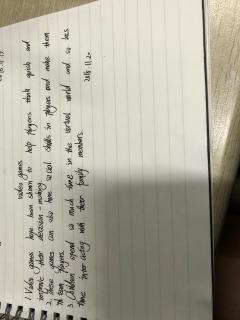 video games
1. Video games have been shown to help players think quick and
improve their decision-making.
2. These games can also hone social skills in players and make them
team players.
3. Children spend so much time in the virtual world and so less
time interacting with their family members.
2018.11.20